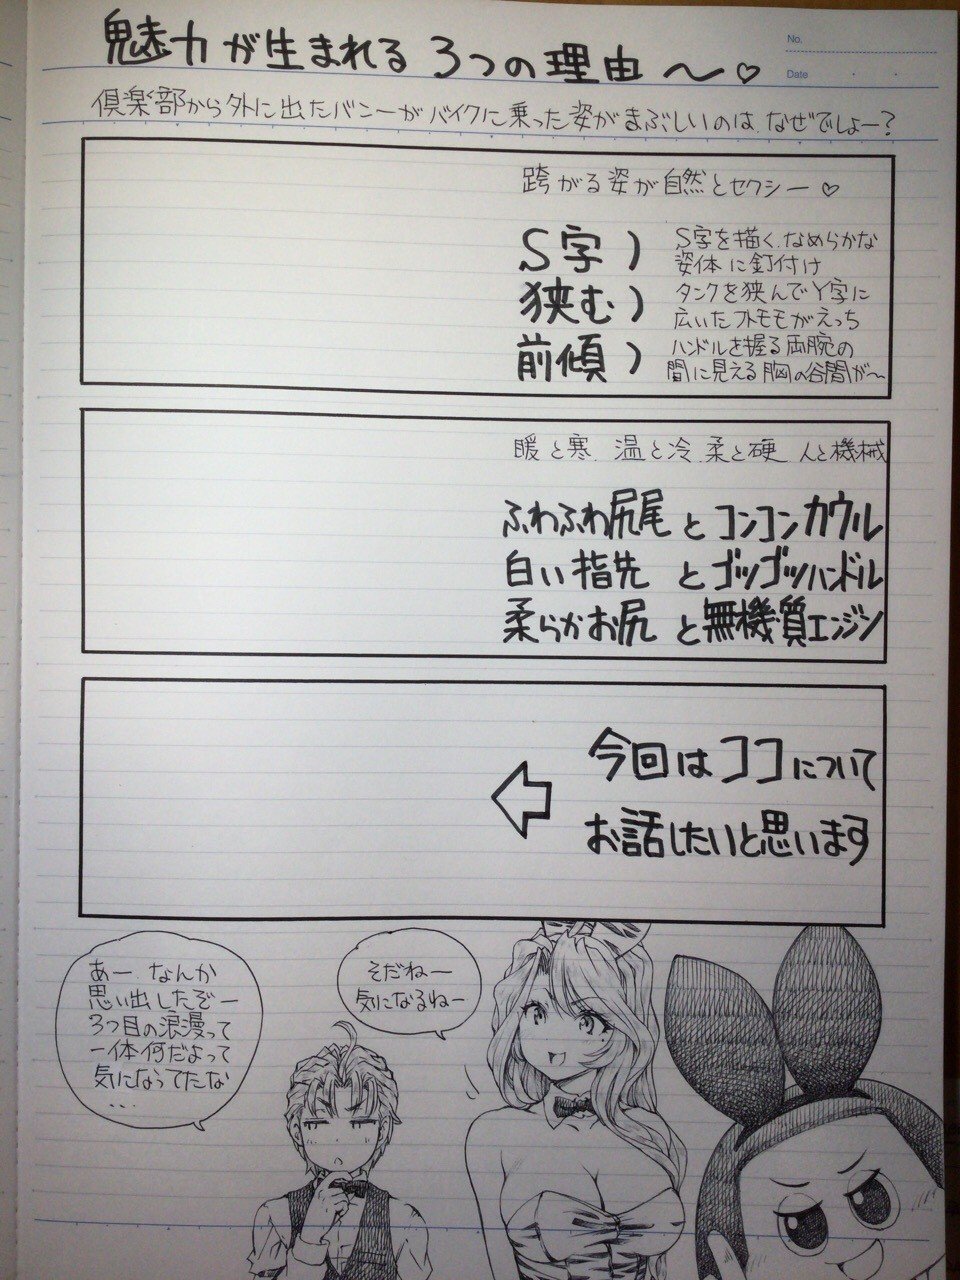 No.
Date
魅力が生まれる3つの理由〜♡
倶楽部から外に出たバニーがバイクに乗った姿がまぶしいのは、なぜでしょー?
跨がる姿が自然とセクシー♡
S字) S字を描く、なめらかな
姿体に釘付け
狭む) タンクを狭んでY字に
広いたフトモモがえっち
前傾) ハンドルを握る両腕の
間に見える胸の谷間が〜
暖と寒、温と冷、柔と硬、人と機械
ふわふわ尻尾とコンコンカウル
白い指先とゴツゴツハンドル
柔らかお尻と無機質エンジン
今回はココについて
お話したいと思います
あー、なんか
思い出したぞー
3つ目の浪漫って
一体何だよって
気になってたな
...
そだねー
気になるねー